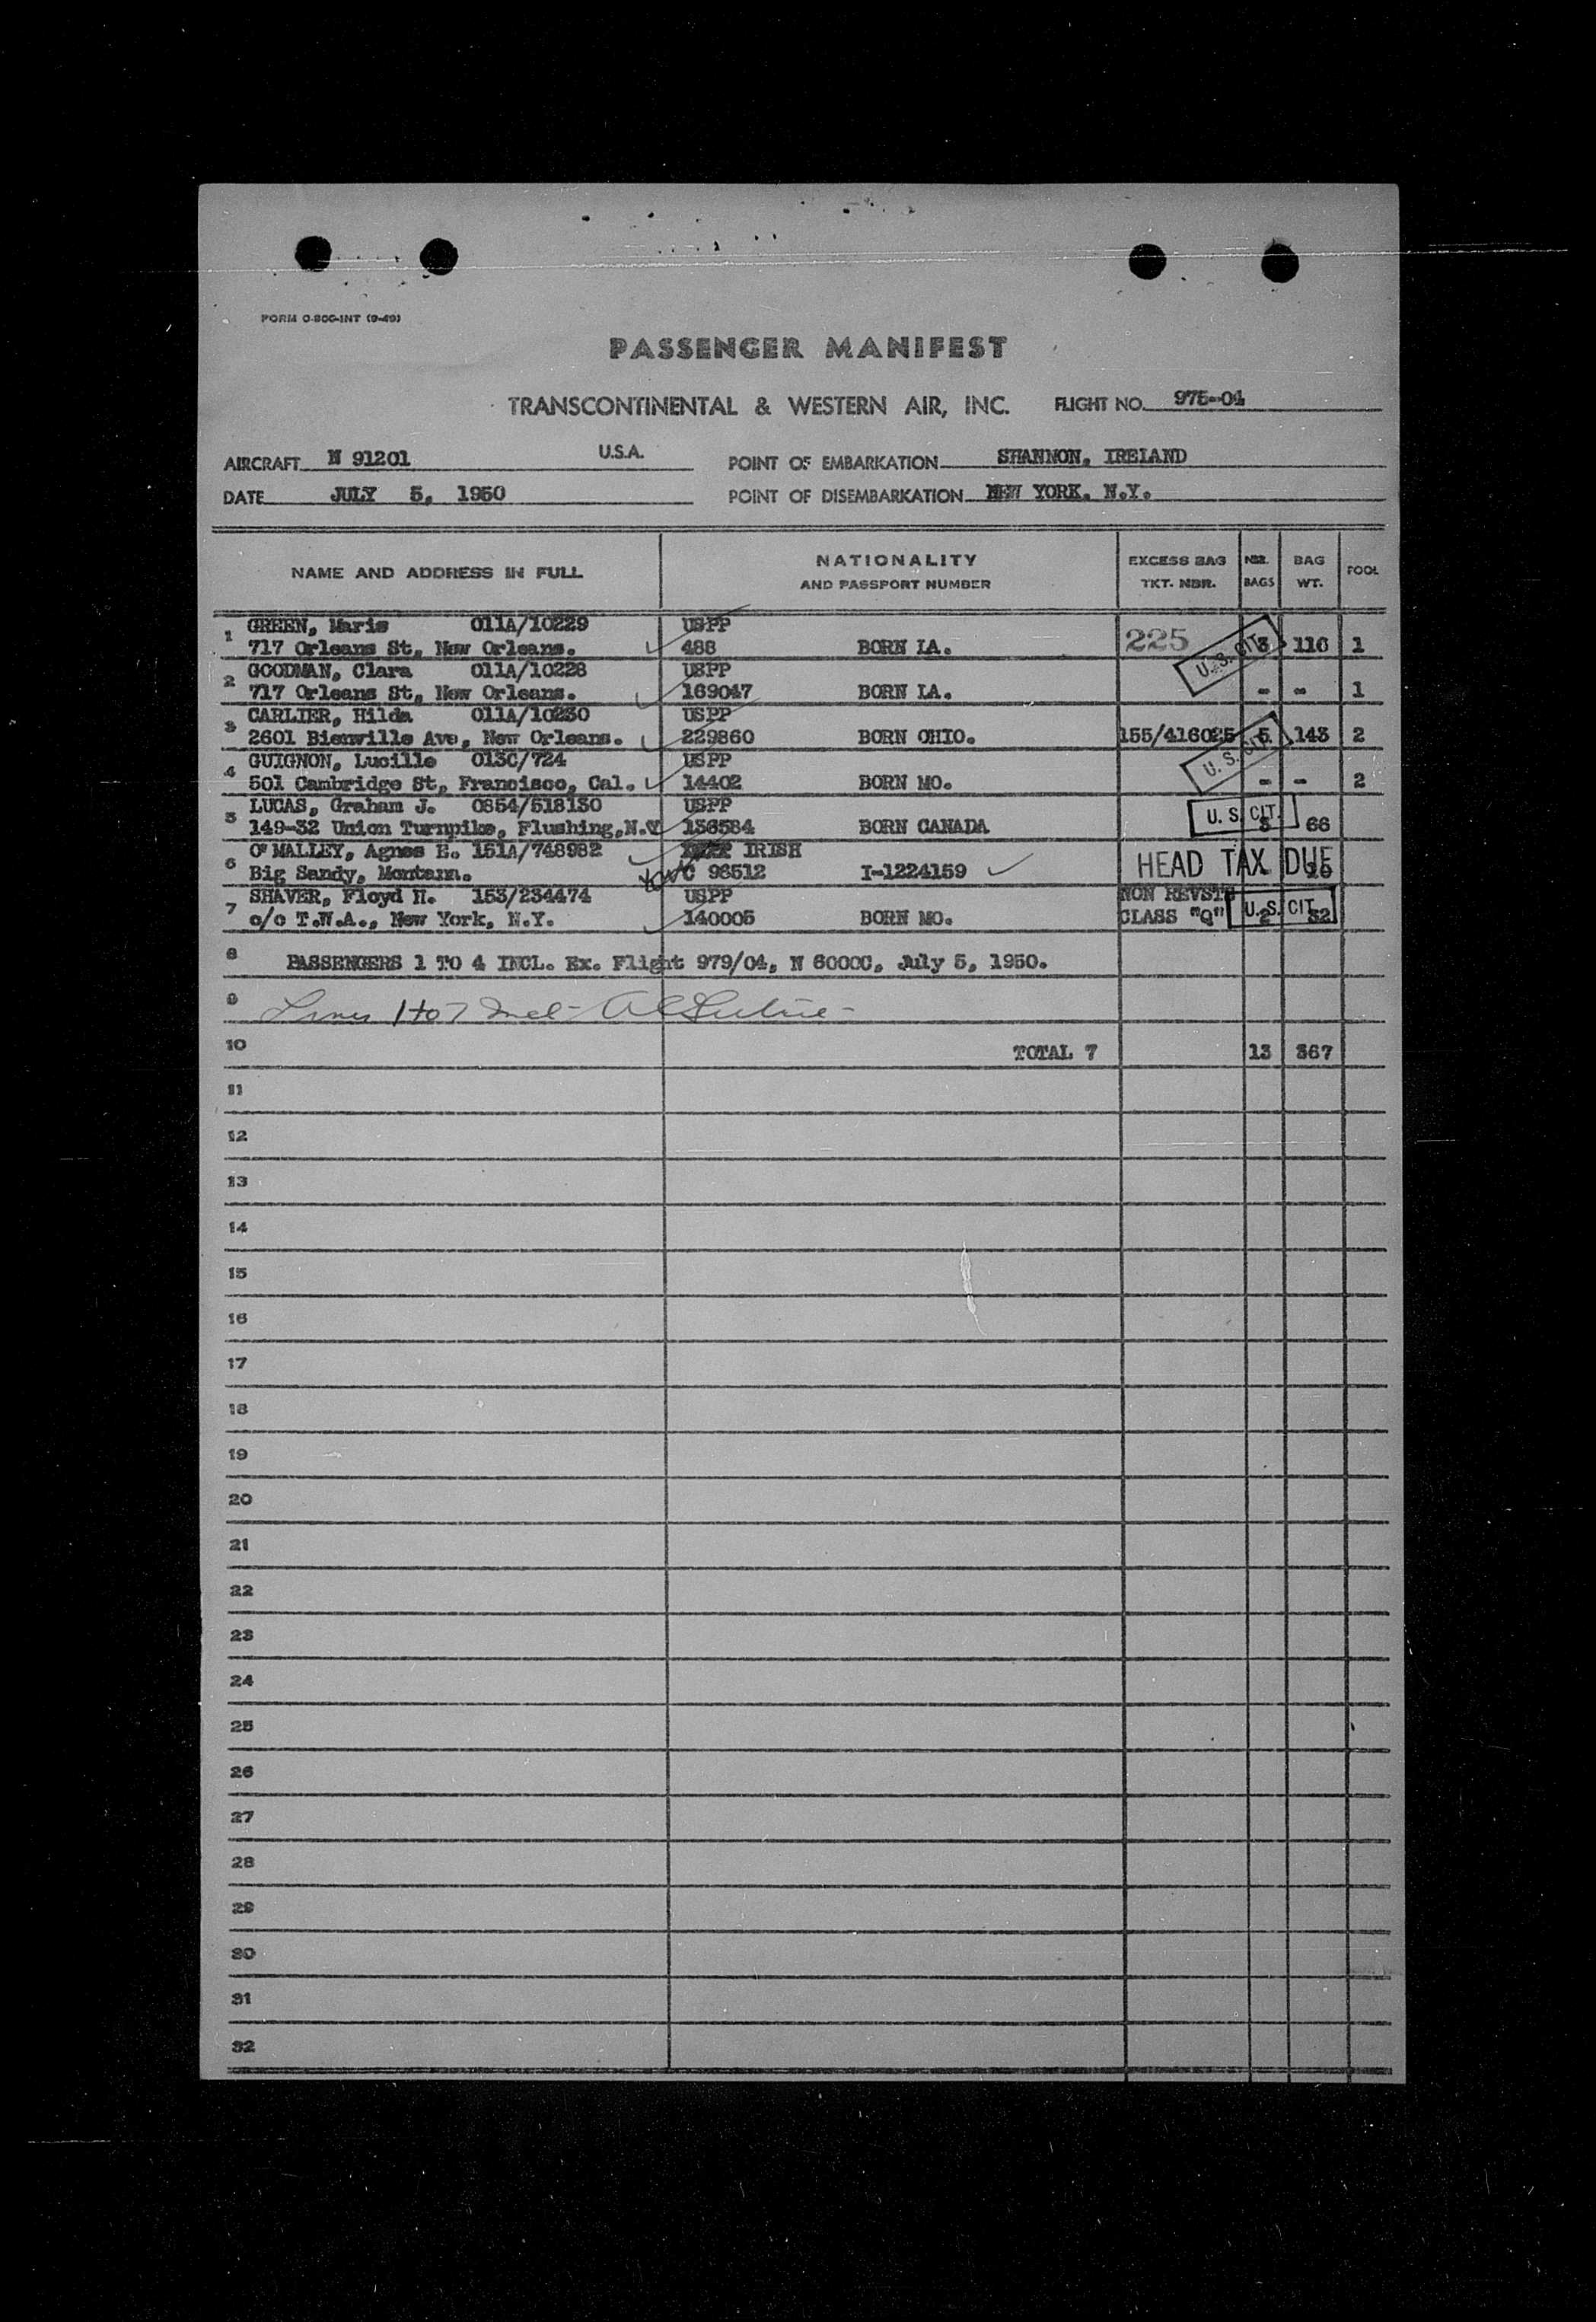 FORM O-800-INT (9-49)
PASSENGER MANIFEST
TRANSCONTINENTAL & WESTERN AIR, INC. FLIGHT NO. 975-04
AIRCRAFT N 91201 U.S.A. POINT OF EMBARKATION SHANNON, IRELAND
DATE JULY 5, 1950 POINT OF DISEMBARKATION NEW YORK, N.Y.
NAME AND ADDRESS IN FULL NATIONALITY AND PASSPORT NUMBER EXCESS BAG TKT. NBR. NBR. BAGS BAG WT. POOL
1 GREEN, Marie 011A/10229 USPP
717 Orleans St, New Orleans. 488 BORN LA. 225 U. S. CIT. 3 116 1
2 GOODMAN, Clara 011A/10228 USPP
717 Orleans St, New Orleans. 169047 BORN LA. - - 1
3 CARLIER, Hilda 011A/10230 USPP
2601 Bienville Ave, New Orleans. 229860 BORN OHIO. 155/416025 5 143 2
4 GUIGNON, Lucille 013C/724 USPP U. S. CIT.
501 Cambridge St, Francisco, Cal. 14402 BORN MO. - - 2
5 LUCAS, Graham J. 0854/518130 USPP
149-32 Union Turnpike, Flushing, N.Y. 136584 BORN CANADA U. S. CIT. 66
6 O'MALLEY, Agnes E. 151A/748982 IRISH
Big Sandy, Montana. C 98512 I-1224159 HEAD TAX DUE
7 SHAVER, Floyd H. 153/234474 USPP NON REVSTS
c/o T.W.A., New York, N.Y. 140005 BORN MO. CLASS "Q" U. S. CIT. 2 32
8 PASSENGERS 1 TO 4 INCL. Ex. Flight 979/04, N 6000C, July 5, 1950.
9 Lines 1 to 7 Incl -
10 TOTAL 7 13 367
11
12
13
14
15
16
17
18
19
20
21
22
23
24
25
26
27
28
29
30
31
32